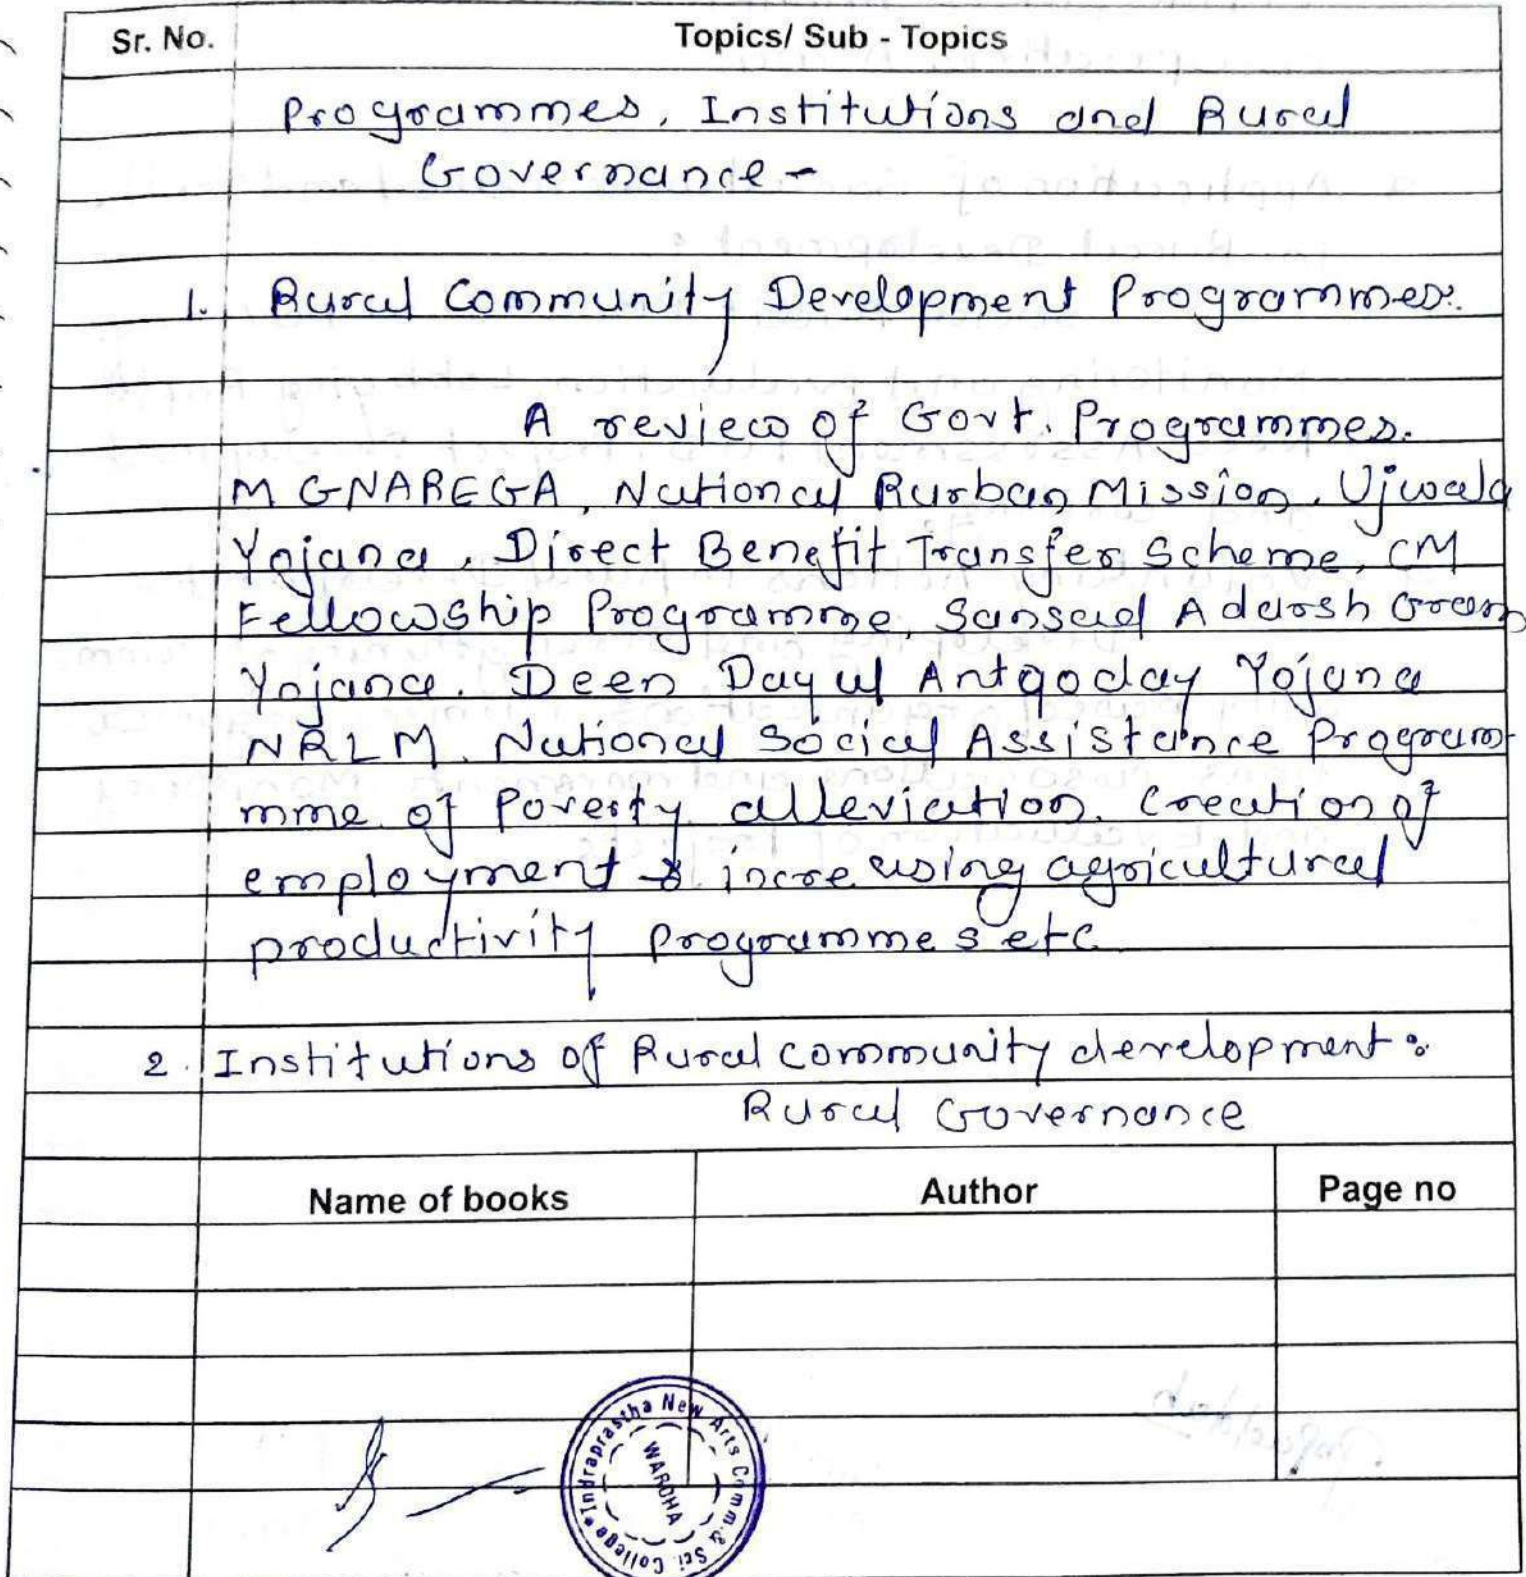 Sr. No. Topics/ Sub - Topics
Programmes, Institutions and Rural
Governance -
1. Rural Community Development Programmes:
A review of Govt. Programmes.
MGNAREGA, National Rurban Mission, Ujwala
Yojana, Direct Benefit Transfer Scheme, CM
Fellowship Programme, Sansad Adarsh Gram
Yojana. Deen Dayal Antyoday Yojana
NRLM, National Social Assistance Program
mme of Poverty alleviation, Creation of
employment & increasing agricultural
productivity programmes etc
2. Institutions of Rural community development :
Rural Governance
Name of books Author Page no
Indraprastha New Arts Comm. & Sci. College
WARDHA